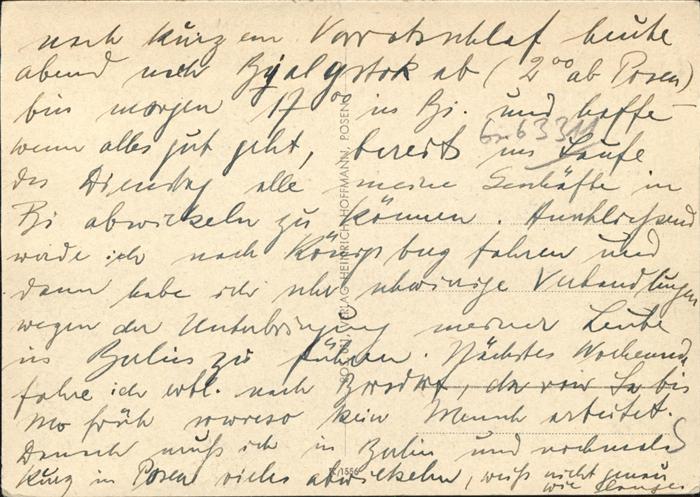 nach kurzem Vorratsschlaf heute
abend nach Byalystok ab (2⁰⁰ ab Posen)
bin morgen 17⁰⁰ in Bi. und hoffe
wenn alles gut geht, bereits im Laufe
des Dienstag alle meine Geschäfte in
Bi abwickeln zu können. Anschliessend
werde ich nach Königsbug fahren und
dann habe ich sehr schwierige Verhandlungen
wegen der Unterbringung meiner Leute
in Berlin zu führen. Nächstes Wochenend
fahre ich evtl. nach, da von Sa bis
Mo früh sowieso kein Mensch arbeitet.
Danach muß ich in Berlin und nochmals
kurz in Posen vieles abwickeln, weiß nicht genau
wie
VERLAG HEINRICH HOFFMANN, POSEN